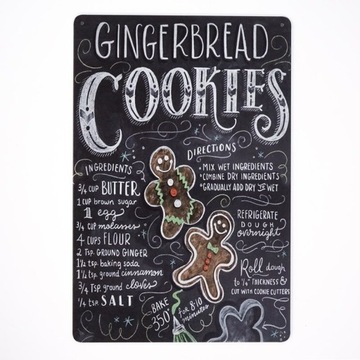 GINGERBREAD
COOKIES
INGREDIENTS
3/4 CUP BUTTER
1 CUP brown sugar
1 egg
3/4 CUP molasses
4 CUPS FLOUR
2 TSP. GROUND GINGER
1 1/2 tsp. baking soda
1 1/2 tsp. ground cinnamon
3/4 tsp. ground cloves
1/4 tsp. SALT
DIRECTIONS
• MIX WET INGREDIENTS
• COMBINE DRY INGREDIENTS
• GRADUALLY ADD DRY TO WET
REFRIGERATE
DOUGH
overnight
Roll dough
to 1/4" THICKNESS &
CUT WITH COOKIE CUTTERS
BAKE
350°
for 8-10
minutes